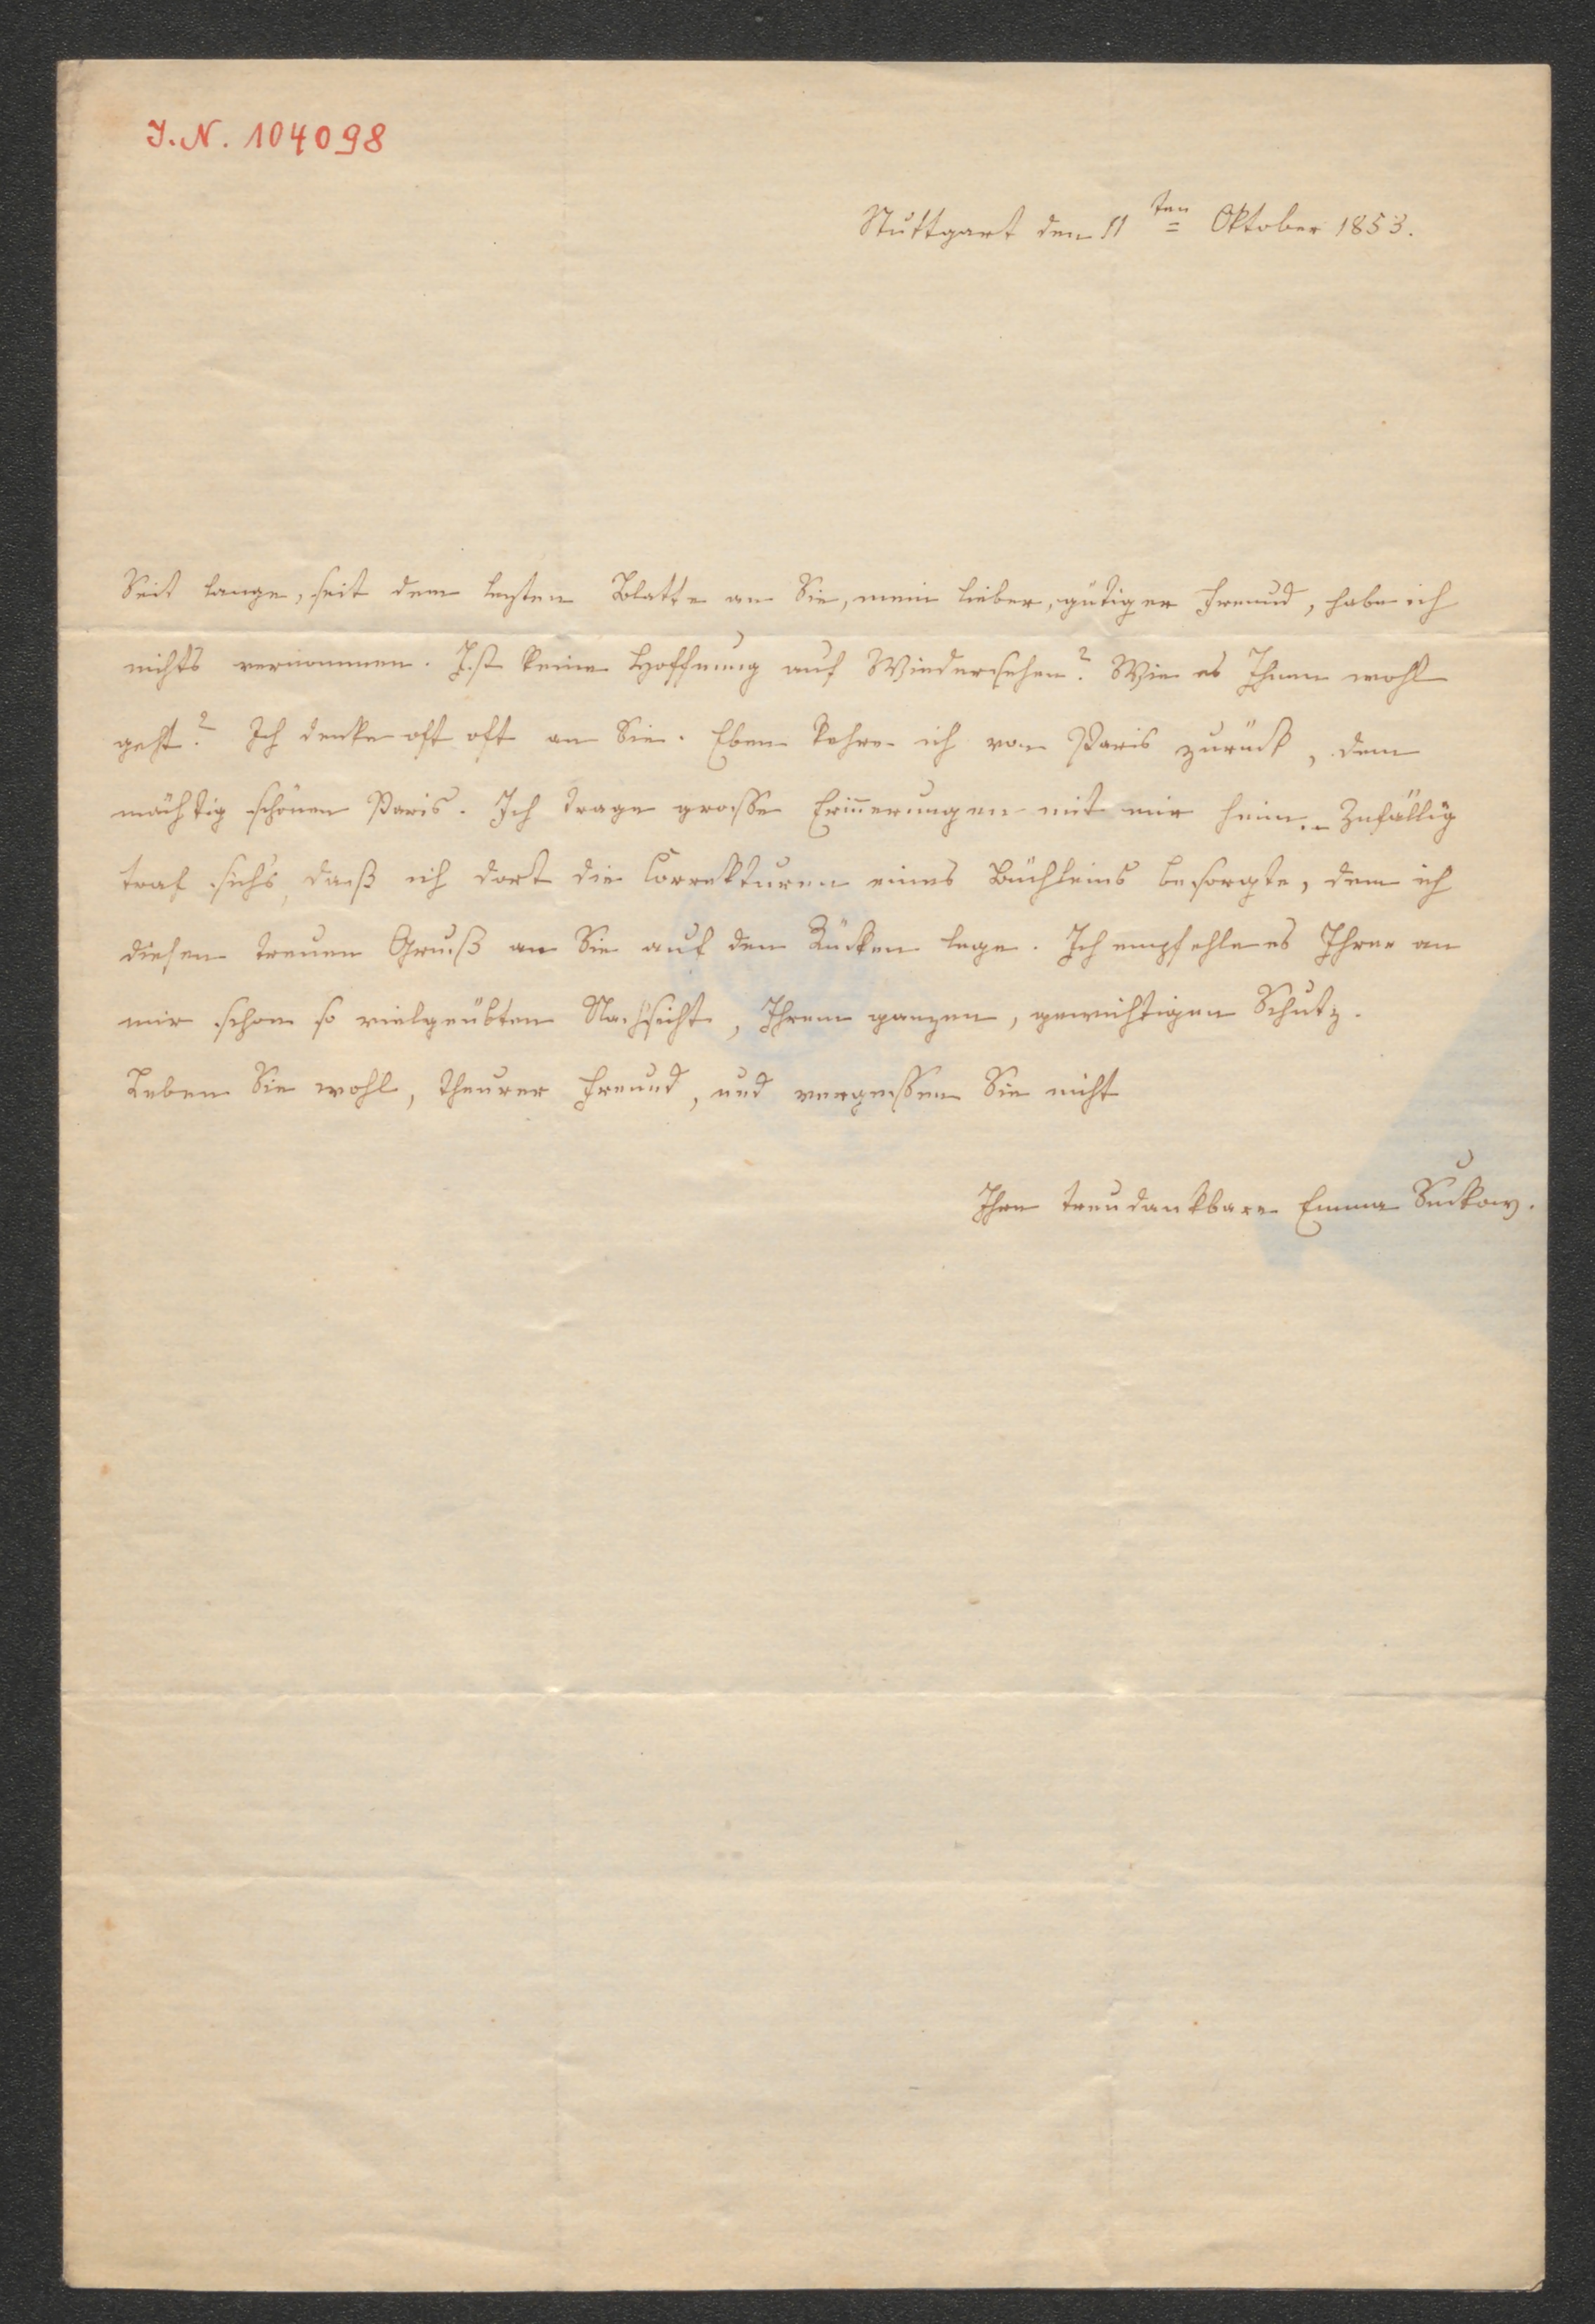 J.N. 104098
Stuttgart den 11ten Oktober 1853.
Seit lange, seit dem lezten Blatte an Sie, mein lieber, gütiger Freund, habe ich
nichts vernommen. Ist keine Hoffnung auf Wiedersehen? Wie es Ihnen wohl
geht? Ich denke oft oft an Sie. Eben kehre ich von Paris zurück, dem
mächtig schönen Paris. Ich trage grosse Erinnerungen mit mir heim. – Zufällig
traf sich's, daß ich dort die Correkturen eines Büchleins besorgte, dem ich
diesen treuen Gruß an Sie auf den Rücken lege. Ich empfehle es Ihrer an
mir schon so vielgeübten Nachsicht, Ihrem ganzen, gewichtigen Schutz.
Leben Sie wohl, theurer Freund, und vergessen Sie nicht
Ihre treudankbare Emma Suckow.